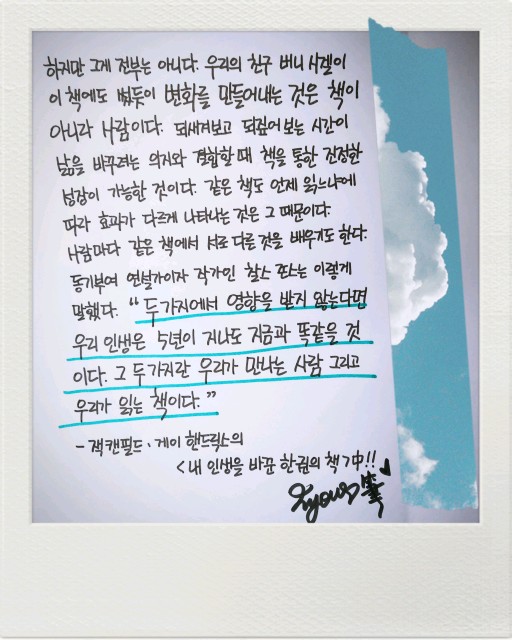 하지만 그게 전부는 아니다. 우리의 친구 버니 시겔이
이 책에도 썼듯이 변화를 만들어내는 것은 책이
아니라 사람이다. 되새겨보고 되짚어 보는 시간이
삶을 바꾸려는 의지와 결합할 때 책을 통한 진정한
성장이 가능한 것이다. 같은 책도 언제 읽느냐에
따라 효과가 다르게 나타나는 것은 그 때문이다.
사람마다 같은 책에서 서로 다른 것을 배우기도 한다.
동기부여 연설가이자 작가인 찰스 존스는 이렇게
말했다. "두가지에서 영향을 받지 않는다면
우리 인생은 5년이 지나도 지금과 똑같을 것
이다. 그 두가지란 우리가 만나는 사람 그리고
우리가 읽는 책이다."
- 잭 캔필드 · 게이 핸드릭스의
<내 인생을 바꾼 한권의 책>中!!